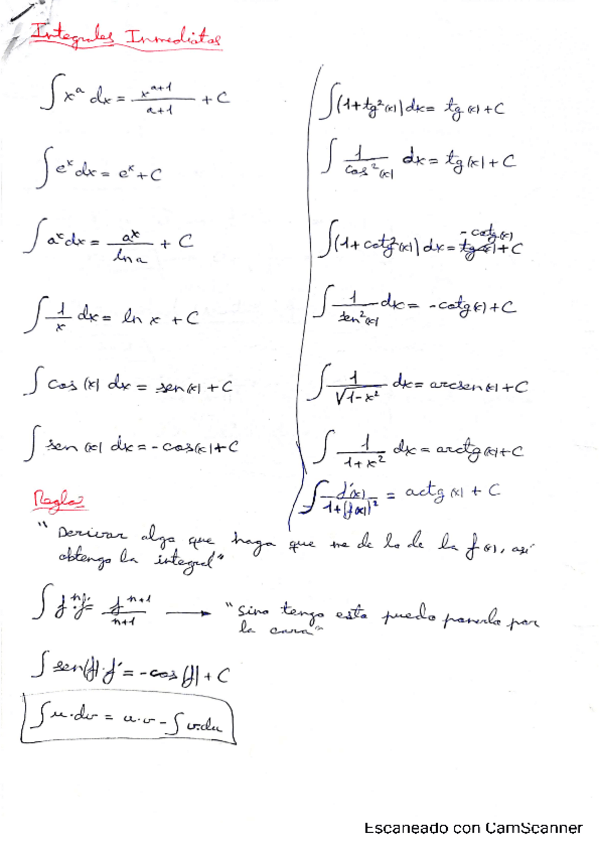 Integrales Inmediatas
∫x^a dx = x^(a+1)/(a+1) + C
∫e^x dx = e^x + C
∫a^x dx = a^x/ln a + C
∫1/x dx = ln x + C
∫cos(x) dx = sen(x) + C
∫sen(x) dx = -cos(x) + C
∫(1+tg²(x)) dx = tg(x) + C
∫1/cos²(x) dx = tg(x) + C
∫(1+cotg²(x)) dx = -cotg(x) + C
∫1/sen²(x) dx = -cotg(x) + C
∫1/√(1-x²) dx = arcsen(x) + C
∫1/(1+x²) dx = arctg(x) + C
∫f'(x)/(1+(f(x))²) = actg(x) + C
Reglas
"Derivar algo que haga que me de lo de la f(x), así
obtengo la integral"
∫f^n·f' = f^(n+1)/(n+1) → "Sino tengo esto puedo ponerlo por
la cara"
∫sen(f)·f' = -cos(f) + C
∫u·dv = u·v - ∫v·du
Escaneado con CamScanner